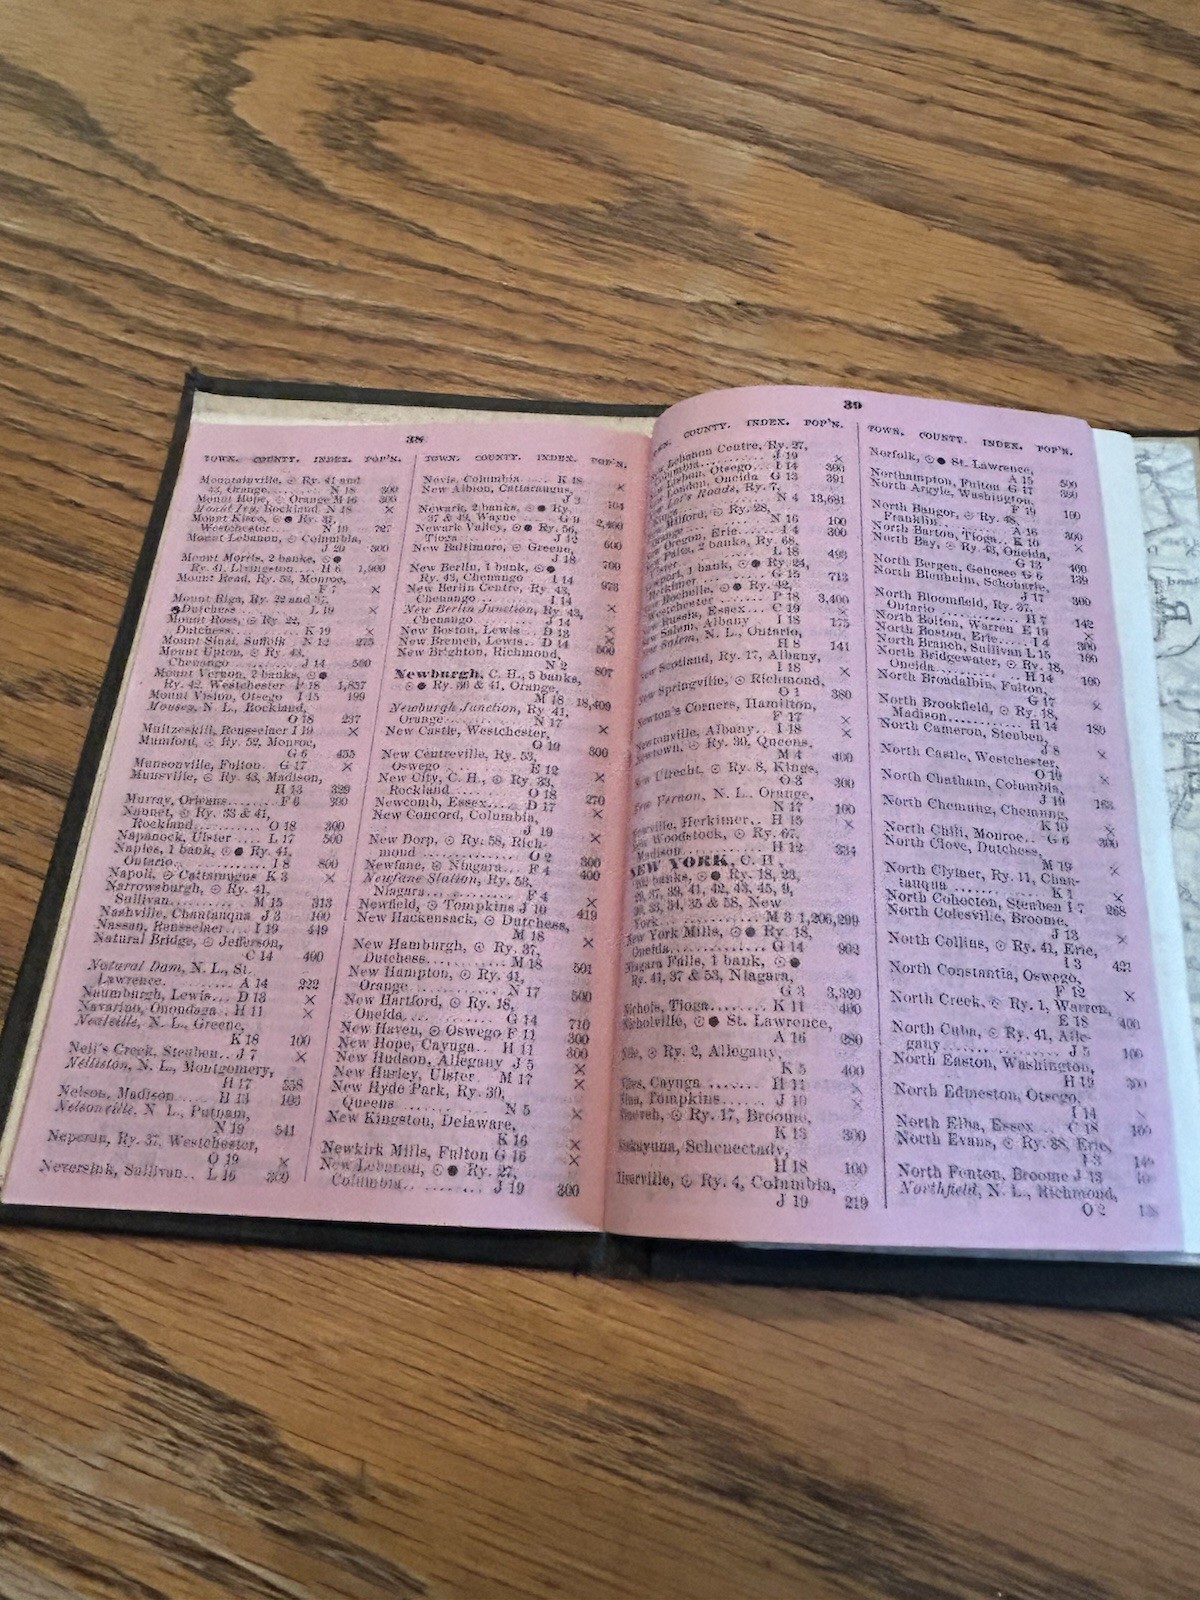 38
TOWN. COUNTY. INDEX. POP'N.
Mountainville, ⊙ Ry. 41 and
43, Orange.... N 18 300
Mount Hope, ⊙ Orange M 16 300
Mount Ivy, Rockland N 18 ×
Mount Kisco, ⊙● Ry. 37,
Westchester... N 19 727
Mount Lebanon, ⊙ Columbia,
J 20 300
Mount Morris, 2 banks, ⊙●
Ry. 41, Livingston.... H 6 1,900
Mount Read, Ry. 53, Monroe,
F 7 ×
Mount Riga, Ry. 22 and 37,
Dutchess....... L 19 ×
Mount Ross, ⊙ Ry. 22,
Dutchess...... K 19 ×
Mount Sinai, Suffolk N 12 275
Mount Upton, ⊙ Ry. 43,
Chenango .... J 14 580
Mount Vernon, 2 banks, ⊙●
Ry. 42, Westchester P 18
Mount Vision, Otsego I 15 199
N. L., Rockland,
O 18 237
Muitzeskill, Rensselaer I 19 ×
Mumford, ⊙ Ry. 52, Monroe,
G 6 455
Munsonville, Fulton G 17 ×
Munsville, ⊙ Ry. 43, Madison,
H 13 329
Murray, Orleans....... F 6 300
Nanuet, ⊙ Ry. 33 & 41,
Rockland....... O 18 300
Napanock, Ulster ... L 17 500
Naples, 1 bank, ⊙● Ry. 41,
Ontario........... I 8 800
Napoli, ⊙ Cattaraugus K 3 ×
Narrowsburgh, ⊙ Ry. 41,
Sullivan....... M 15 313
Nashville, Chautauqua J 3 100
Nassau, Rensselaer... I 19 449
Natural Bridge, ⊙ Jefferson,
C 14 400
Natural Dam, N. L., St.
Lawrence....... A 14 222
Naumburgh, Lewis... D 13 ×
Navarino, Onondaga .. H 11 ×
Nealville, N. L., Greene,
K 18 100
Neil's Creek, Steuben.. J 7 ×
Nelliston, N. L., Montgomery,
H 17 558
Nelson, Madison...... H 13 103
Nelsonville, N. L., Putnam,
N 19 541
Neperan, Ry. 37, Westchester,
O 19 ×
Neversink, Sullivan.. L 16 300
TOWN. COUNTY. INDEX. POP'N.
Nevis, Columbia.... K 18 ×
New Albion, Cattaraugus,
J 3 104
Newark, 2 banks, ⊙● Ry.
37 & 49, Wayne ... G 9
Newark Valley, ⊙● Ry. 56,
Tioga............ J 12 600
New Baltimore, ⊙ Greene,
J 18 700
New Berlin, 1 bank, ⊙●
Ry. 43, Chenango ... I 14 973
New Berlin Centre, Ry. 43,
Chenango ........ I 14 ×
New Berlin Junction, Ry. 43,
Chenango ........ J 14 ×
New Boston, Lewis.. D 13 ×
New Bremen, Lewis.. D 14 500
New Brighton, Richmond,
N 2 807
Newburgh, C. H., 5 banks,
⊙● Ry. 36 & 41, Orange,
M 18 18,409
Newburgh Junction, Ry. 41,
Orange........... N 17 ×
New Castle, Westchester,
O 19 300
New Centreville, Ry. 53,
Oswego ......... E 12 ×
New City, C. H., ⊙ Ry. 33,
Rockland......... O 18 270
Newcomb, Essex..... D 17 ×
New Concord, Columbia,
J 19 ×
New Dorp, ⊙ Ry. 58, Rich-
mond ............ O 2 300
Newfane, ⊙ Niagara... F 4 400
Newfane Station, Ry. 53,
Niagara.......... F 4 ×
Newfield, ⊙ Tompkins J 10 419
New Hackensack, ⊙ Dutchess,
M 18 ×
New Hamburgh, ⊙ Ry. 37,
Dutchess......... M 18 501
New Hampton, ⊙ Ry. 41,
Orange .......... N 17 500
New Hartford, ⊙ Ry. 18,
Oneida........... G 14 710
New Haven, ⊙ Oswego F 11 300
New Hope, Cayuga.. H 11 300
New Hudson, Allegany J 5 ×
New Hurley, Ulster.. M 17 ×
New Hyde Park, Ry. 30,
Queens .......... N 5 ×
New Kingston, Delaware,
K 16 ×
Newkirk Mills, Fulton G 16 ×
New Lebanon, ⊙● Ry. 27,
Columbia......... J 19 300
39
COUNTY. INDEX. POP'N.
Lebanon Centre, Ry. 27,
J 19 ×
Lisbon, Otsego... I 14 300
London, Oneida G 13 391
Roads, Ry. 7,
N 4 13,681
Milford, ⊙ Ry. 28,
N 16 100
Oregon, Erie.... I 4 300
2 banks, Ry. 68,
L 18 493
1 bank, ⊙● Ry. 24,
G 15 713
Rochelle, ⊙● Ry. 42,
Westchester.... P 18 3,400
Russia, Essex .... C 19 ×
Salem, Albany ... I 18 175
Salem, N. L., Ontario,
H 8 141
New Scotland, Ry. 17, Albany,
I 18 ×
New Springville, ⊙ Richmond,
O 1 380
Newton's Corners, Hamilton,
F 17 ×
Newtonville, Albany.. I 18 ×
Newtown, ⊙ Ry. 30, Queens,
M 4 400
New Utrecht, ⊙ Ry. 8, Kings,
O 3 300
Vernon, N. L. Orange,
N 17 100
Herkimer.. H 15 ×
New Woodstock, ⊙ Ry. 67,
Madison ........ H 12 334
NEW YORK, C. H.,
banks, ⊙● Ry. 18, 23,
37, 39, 41, 42, 43, 45, 9,
33, 34, 35 & 58, New
York............ M 3 1,206,299
New York Mills, ⊙● Ry. 18,
Oneida.......... G 14 902
Niagara Falls, 1 bank, ⊙●
Ry. 41, 37 & 53, Niagara,
G 3 3,320
Nichols, Tioga....... K 11 400
Nicholville, ⊙● St. Lawrence,
A 16 280
Nile, ⊙ Ry. 2, Allegany,
K 5 400
Niles, Cayuga ....... H 11 ×
Tompkins.... J 10 ×
Nineveh, ⊙ Ry. 17, Broome,
K 13 300
Niskayuna, Schenectady,
H 18 100
Niverville, ⊙ Ry. 4, Columbia,
J 19 219
TOWN. COUNTY. INDEX. POP'N.
Norfolk, ⊙● St. Lawrence,
A 15 500
Northampton, Fulton G 17 350
North Argyle, Washington,
F 19 100
North Bangor, ⊙ Ry. 48,
Franklin........ A 16 300
North Barton, Tioga.. K 10 ×
North Bay, ⊙ Ry. 43, Oneida,
G 13 400
North Bergen, Genesee G 6 139
North Blenheim, Schoharie,
J 17 300
North Bloomfield, Ry. 37,
Ontario ......... H 7 142
North Bolton, Warren E 19 ×
North Boston, Erie.... I 4 300
North Branch, Sullivan L 15 100
North Bridgewater, ⊙ Ry. 18,
Oneida.......... H 14 100
North Broadalbin, Fulton,
G 17 ×
North Brookfield, ⊙ Ry. 18,
Madison......... H 14 189
North Cameron, Steuben,
J 8 ×
North Castle, Westchester,
O 19 ×
North Chatham, Columbia,
J 19 163
North Chemung, Chemung,
K 10 ×
North Chili, Monroe.. G 6 300
North Clove, Dutchess,
M 19 ×
North Clymer, Ry. 11, Chau-
tauqua ......... K 1 ×
North Cohocton, Steuben I 7 268
North Colesville, Broome,
J 13 ×
North Collins, ⊙ Ry. 41, Erie,
I 3 421
North Constantia, Oswego,
F 12 ×
North Creek, ⊙ Ry. 1, Warren,
E 18 400
North Cuba, ⊙ Ry. 41, Alle-
gany............ J 5 100
North Easton, Washington,
H 19 300
North Edmeston, Otsego,
I 14 ×
North Elba, Essex .. C 18
North Evans, ⊙ Ry. 38, Erie,
I 3
North Fenton, Broome J 13
Northfield, N. L., Richmond,
O 2